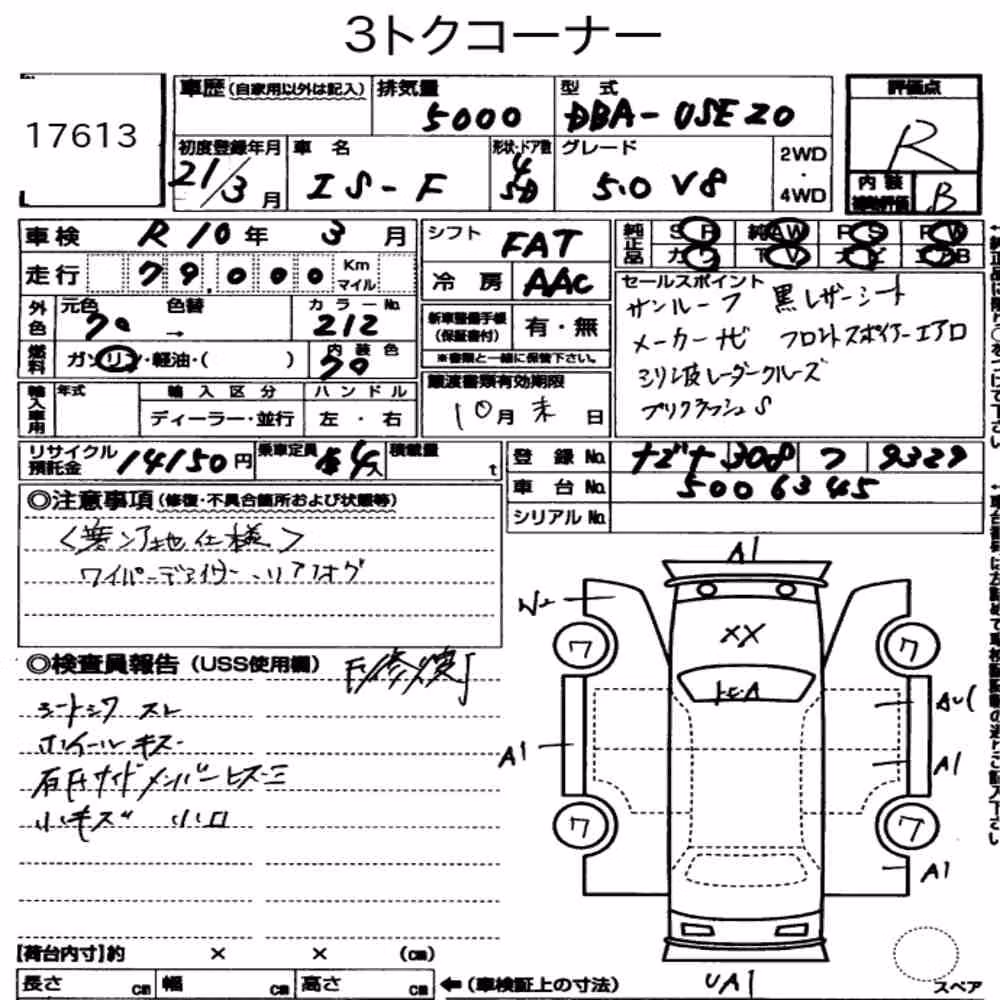 3トクコーナー
17613
車歴（自家用以外は記入）
排気量
5000
型式
DBA-USE20
評価点
R
初度登録年月
21/3月
車名
IS-F
形状・ドア数
4
SD
グレード
5.0 V8
2WD
・
4WD
内装
B
車検 R10年 3月
走行 79,000 Km マイル
シフト FAT
冷房 AAC
純正品
SR 純AW PS PW
カワ TV ナビ エアB
外色
元色 クロ
色替 →
カラーNo. 212
燃料 ガソリン・軽油・（ ）
内装色 クロ
新車整備手帳（保証書付） 有・無
※書類と一緒に保管下さい。
セールスポイント
サンルーフ 黒レザーシート
メーカーナビ フロントスポイラーエアロ
ミリ波レーダークルーズ
プリクラッシュS
輸入車用
年式
輸入区分
ディーラー・並行
ハンドル
左・右
譲渡書類有効期限
10月末日
リサイクル預託金 14150円
乗車定員 4人
積載量 t
登録No. 308 フ 9329
車台No. 5006345
シリアルNo.
◎注意事項（修復・不具合箇所および状態等）
〈寒冷地仕様〉
ワイパーデアイサー、リアフォグ
◎検査員報告（USS使用欄）
「修復」
シートシワ スレ
ホイールキズ
右Fサイドメンバー
小キズ 小凹
A1
W2
XX
トビA
ワ
ワ
ワ
ワ
A1
AU1
A1
A1
UA1
スペア
【荷台内寸】約 × × （cm）
長さ cm 幅 cm 高さ cm ←（車検証上の寸法）